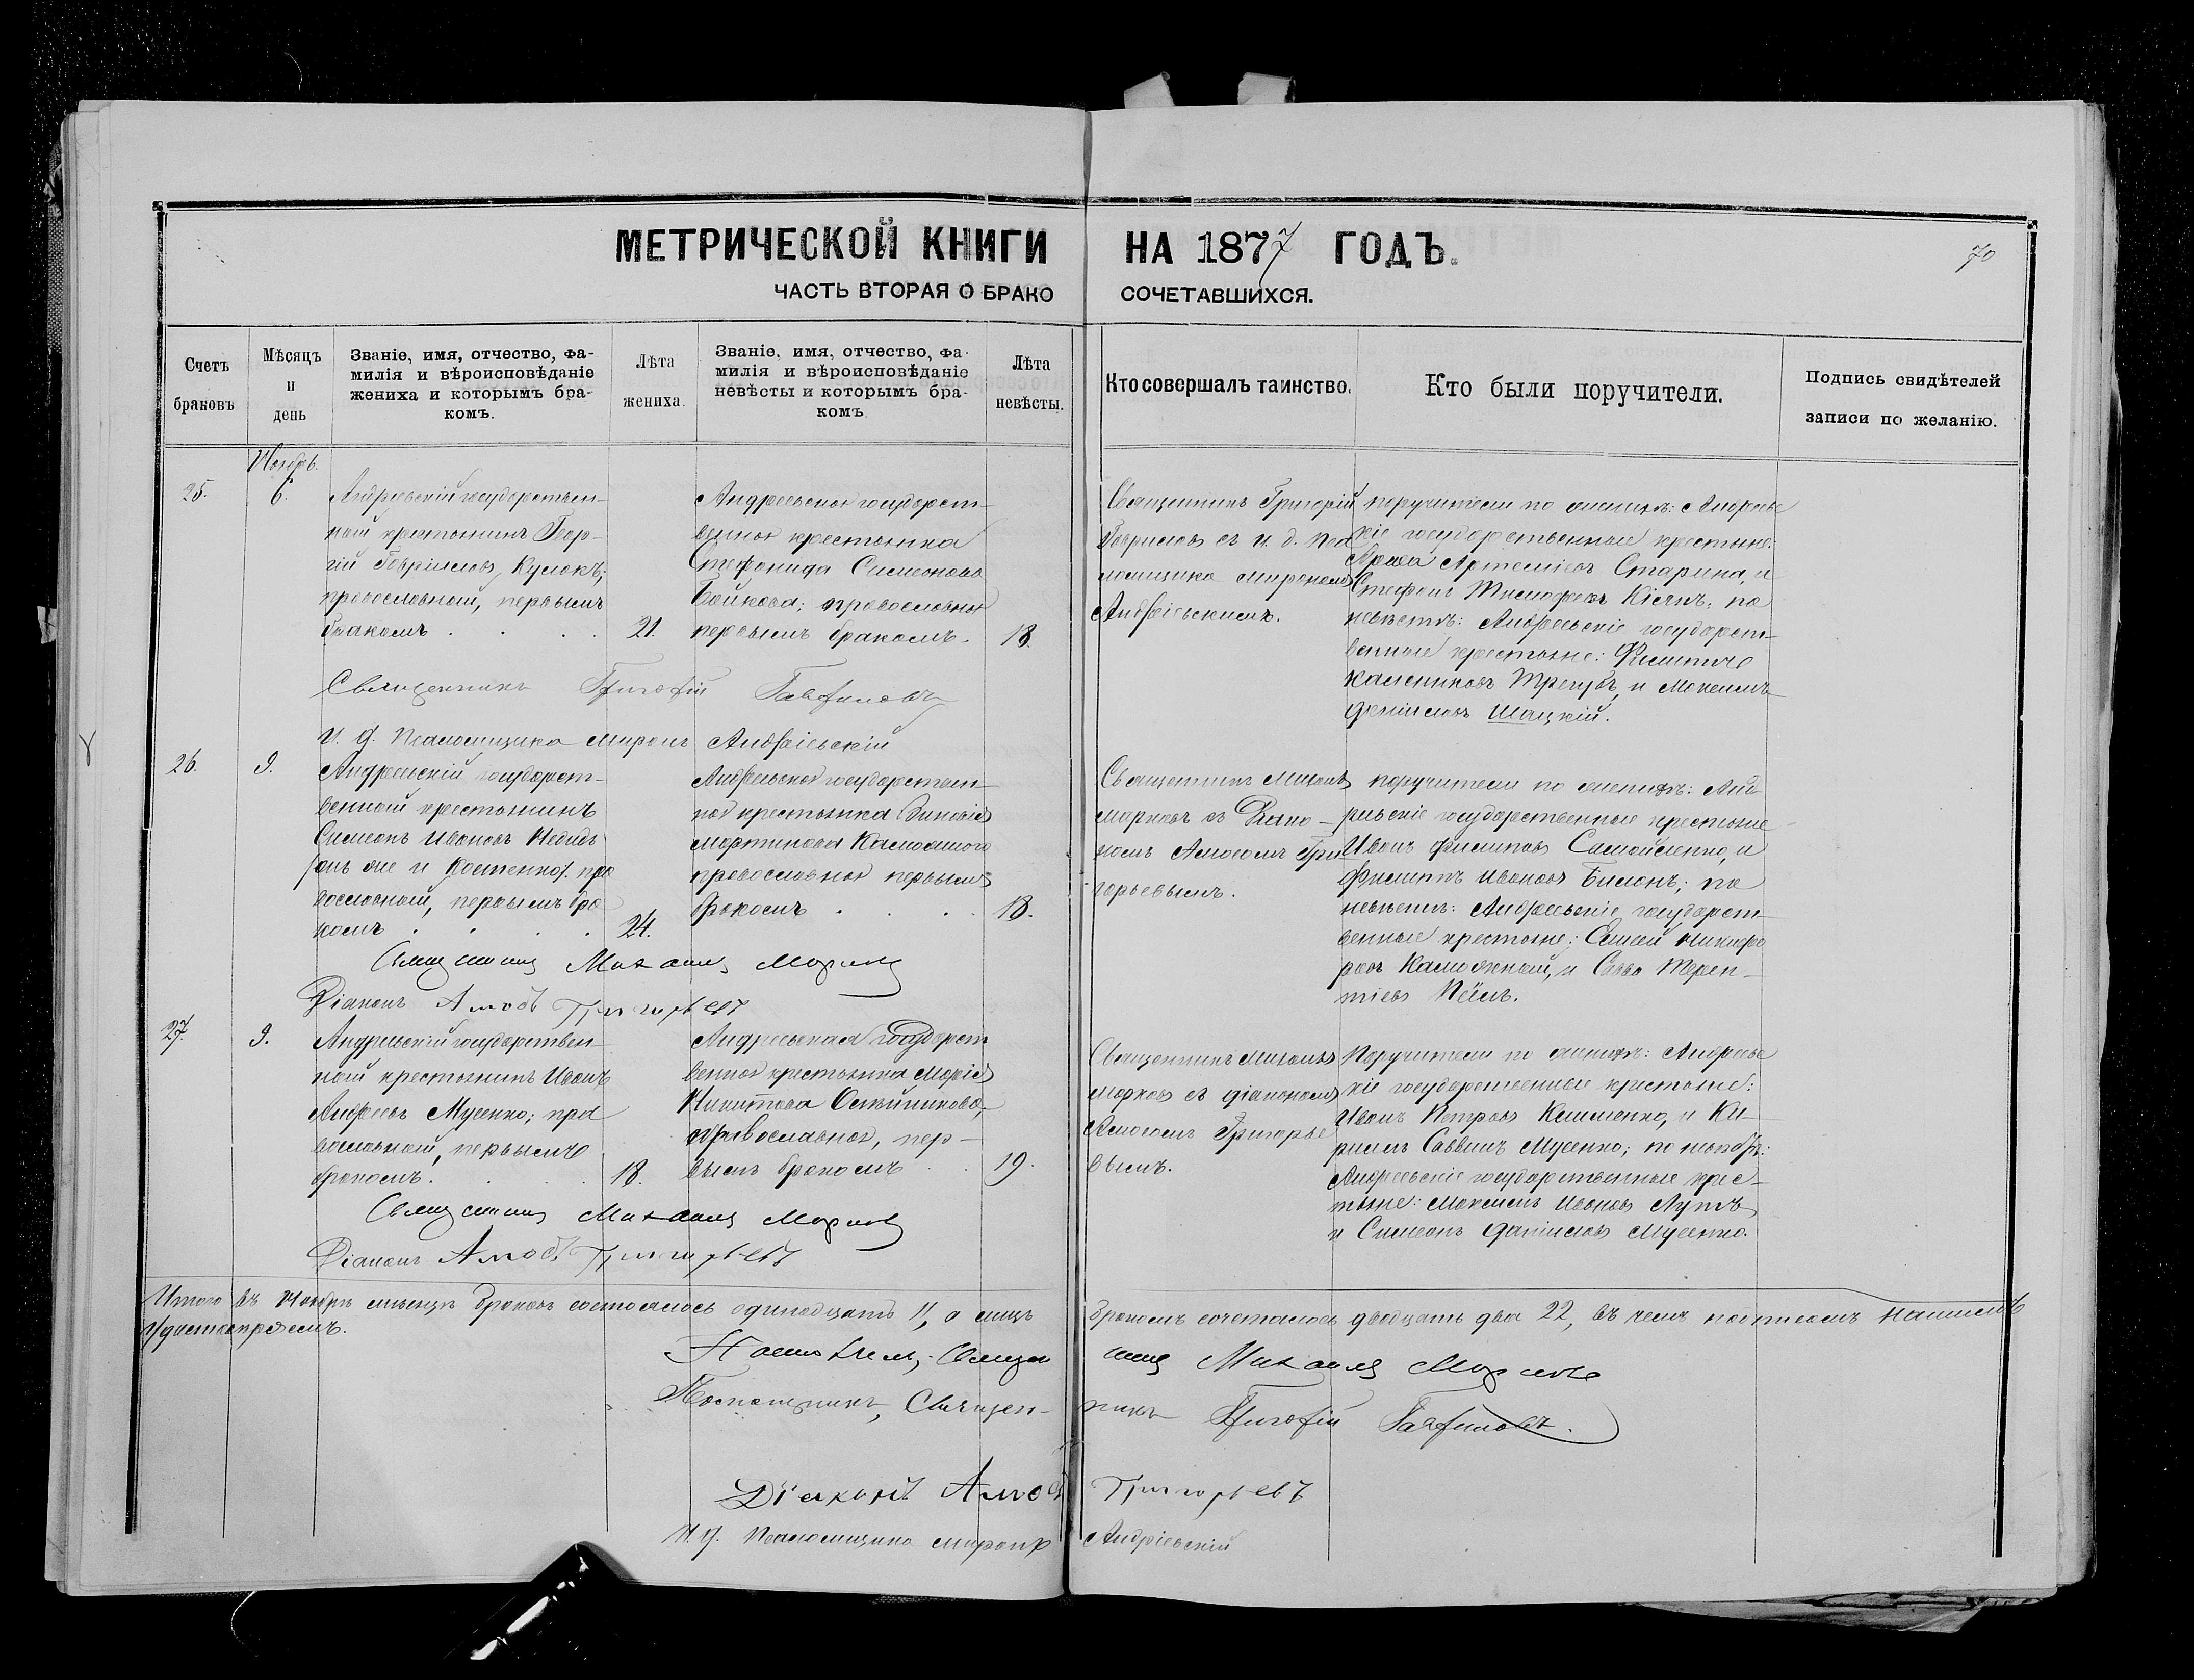 МЕТРИЧЕСКОЙ КНИГИ НА 1877 ГОДЪ.
70
ЧАСТЬ ВТОРАЯ О БРАКО СОЧЕТАВШИХСЯ.
Счетъ браковъ
Мѣсяцъ и день
Званіе, имя, отчество, фа-
милія и вѣроисповѣданіе
жениха и которымъ бра-
комъ.
Лѣта жениха.
Званіе, имя, отчество, фа-
милія и вѣроисповѣданіе
невѣсты и которымъ бра-
комъ
Лѣта невѣсты.
Кто совершалъ таинство.
Кто были поручители.
Подпись свидѣтелей
записи по желанію.
Ноябрь.
25.
6.
Андреевскій государствен-
ный крестьянинъ Геор-
гій Гавріиловъ
православный, первымъ
бракомъ
21.
Андреевская государст-
венная крестьянка
Стефанида Симеонова
Бойкова; православная
первымъ бракомъ.
18.
Священникъ Григорій
Гавриловъ съ и. д. пса
ломщика Мирономъ
Андріевскимъ.
поручители по женихѣ: Андреевс
кіе государственные крестьяне:
Артеміевъ Старина, и
Стефанъ Тимофеевъ Кіянъ; по
невѣстѣ: Андреевскіе государст-
венные крестьяне: Филиппъ
и Максимъ
Даніиловъ Шацкій.
Священникъ Григорій Гавриловъ
И. д. Псаломщика Миронъ Андріевскій
26.
9.
Андреевскій государст-
венный крестьянинъ
Симеонъ Ивановъ
онъ же и Костенко), пра
вославный, первымъ бра
комъ
24.
Андреевская государствен-
ная крестьянка Зиновія
Мартинова
православная первымъ
бракомъ
18.
Священникъ Михаилъ
Марковъ съ Діако-
номъ Амосомъ Гри-
горьевымъ.
поручители по женихѣ: Анд-
реевскіе государственные крестьяне
Иванъ Филиповъ Самойленко, и
Филиппъ Ивановъ Билонъ; по
невѣстѣ: Андреевскіе государст-
венные крестьяне: Никифо
ровъ и Савва Терен-
тіевъ
Священникъ Михаилъ Марковъ
Діаконъ Амосъ Григорьевъ
27.
9.
Андреевскій государствен-
ный крестьянинъ Иванъ
Андреевъ Мусенко; пра
вославный, первымъ
бракомъ.
18.
Андреевская государст
венная крестьянка Марія
Никитова Олейникова,
православная, пер-
вымъ бракомъ
19.
Священникъ Михаилъ
Марковъ съ діакономъ
Амосомъ Григорье
вымъ.
Поручители по женихѣ: Андреевс
кіе государственные крестьяне:
Иванъ Петровъ Клименко, и Ки-
риллъ Саввинъ Мусенко; по невѣстѣ:
Андреевскіе государственные крес-
тьяне: Максимъ Ивановъ Лутъ
и Симеонъ Даніиловъ Мусенко.
Священникъ Михаилъ Марковъ
Діаконъ Амосъ Григорьевъ
Итого въ Ноябрѣ мѣсяцѣ браковъ состоялось одинадцать 11, а лицъ бракомъ сочеталось двадцать два 22, въ чемъ подписомъ нашимъ
удостовѣряемъ.
Настоятель, Священникъ Михаилъ Марковъ
Помощникъ, Священ-никъ Григорій Гавриловъ.
Діаконъ Амосъ Григорьевъ
И. д. Псаломщика Миронъ Андріевскій